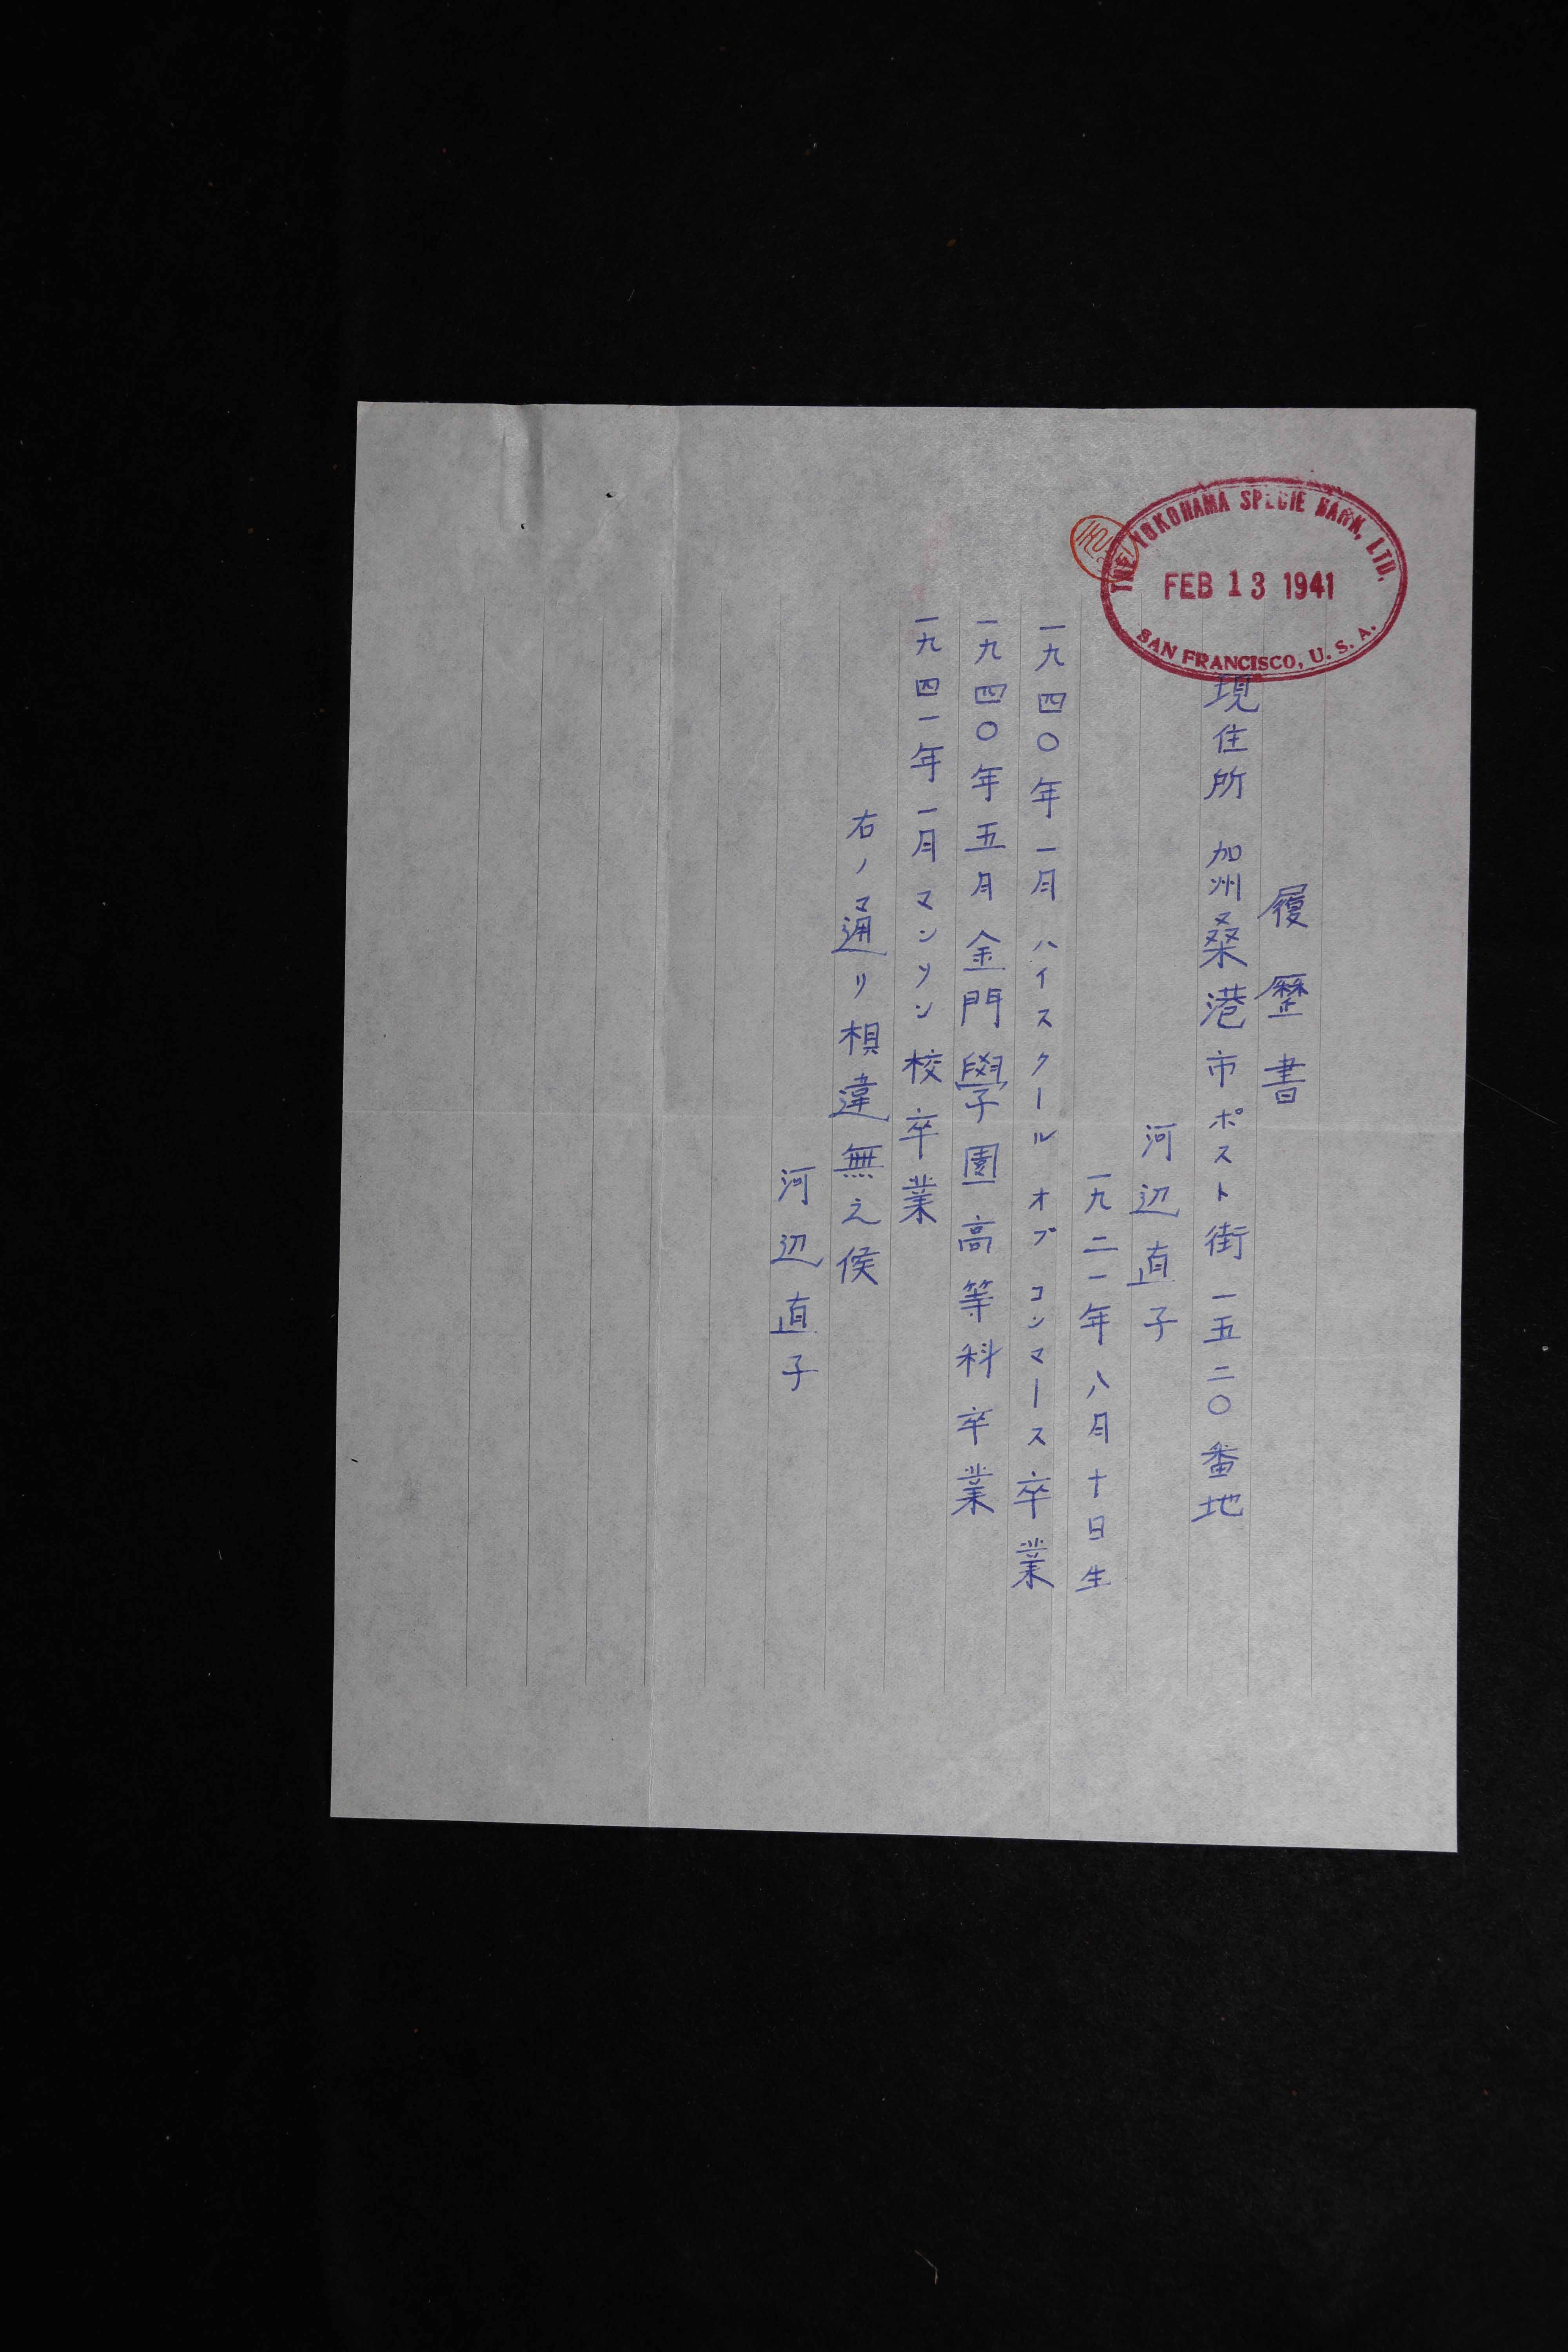 THE YOKOHAMA SPECIE BANK, LTD.
FEB 13 1941
SAN FRANCISCO, U. S. A.
履歴書
現住所 加州桑港市ポスト街一五二〇番地
河辺直子
一九二一年八月十日生
一九四〇年一月 ハイスクール オブ コンマース卒業
一九四〇年五月 金門學園高等科卒業
一九四一年一月 マンソン校卒業
右ノ通リ相違無之候
河辺直子